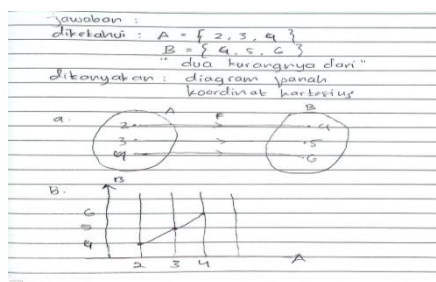 Jawaban :
diketahui : A = { 2, 3, 4 }
B = { 4, 5, 6 }
" dua kurangnya dari "
Ditanyakan : diagram panah
koordinat kartesius
a. A F B
2 4
3 5
4 6
b. B
6
5
4
2 3 4 A